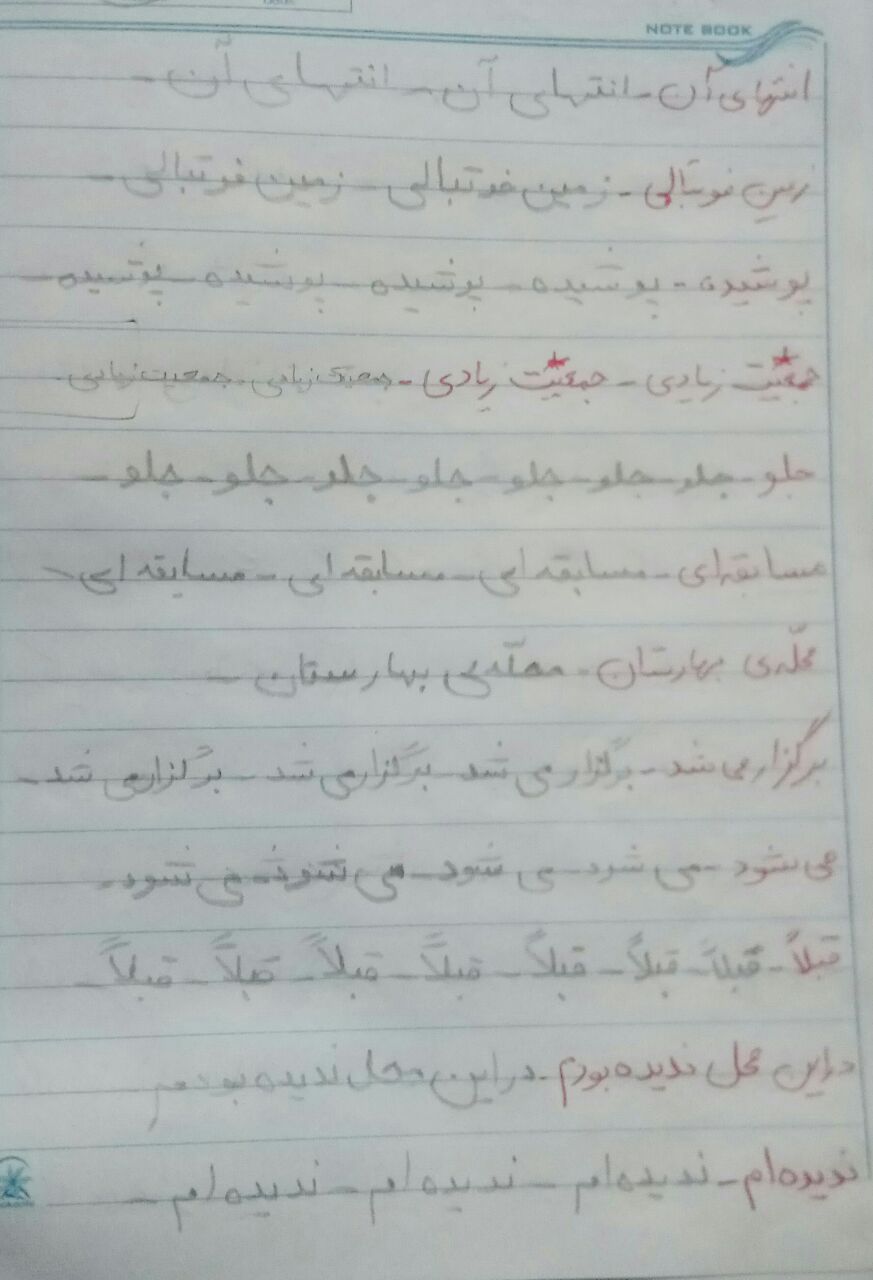 NOTE BOOK
انتهای آن - انتهای آن - انتهای آن -
زمین فوتبالی - زمین فوتبالی - زمین فوتبالی -
پوشیده - پوشیده - پوشیده - پوشیده - پوشیده -
جمعیّت زیادی - جمعیّت زیادی - جمعیت زیادی - جمعیت زیادی -
جلو - جلو - جلو - جلو - جلو - جلو - جلو - جلو -
مسابقه‌ای - مسابقه‌ای - مسابقه‌ای - مسابقه‌ای -
محلّه‌ی بهارستان - محلّه‌ی بهارستان -
برگزار می شد - برگزار می شد - برگزار می شد - برگزار می شد -
می شود - می شود - می شود - می شود - می شود -
قبلاً - قبلاً - قبلاً - قبلاً - قبلاً - قبلاً - قبلاً - قبلاً
در این محل ندیده بودم - در این محل ندیده بودم
ندیده ام - ندیده ام - ندیده ام - ندیده ام -